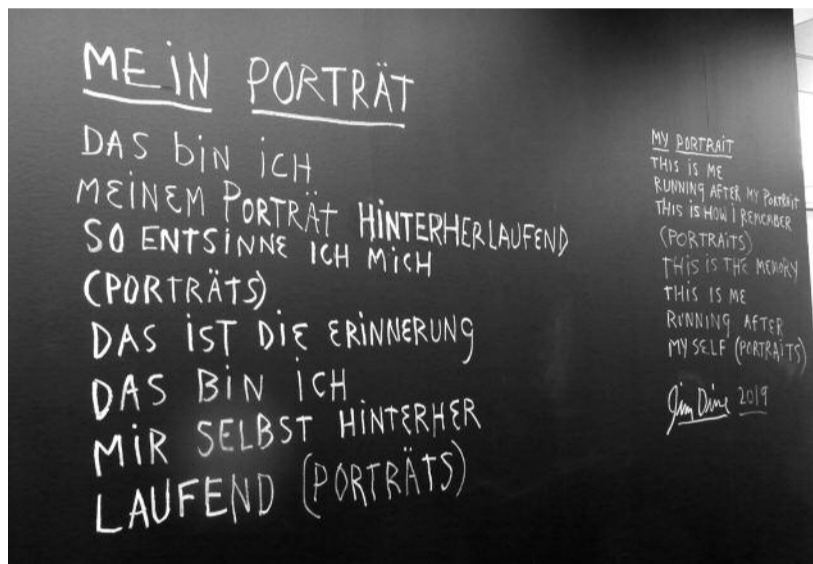 MEIN PORTRÄT
DAS biN iCH
MEINEM PORTRÄT HINTERHERLAUFEND
SO ENTSINNE ICH MiCH
(PORTRÄTS)
DAS iST DIE ERINNERUNG
DAS BiN iCH
MiR SELBST HINTERHER
LAUFEND (PORTRÄTS)
MY PORTRAIT
THIS IS ME
RUNNING AFTER MY PORTRAIT
THIS IS HOW i REMEMBER
(PORTRAITS)
THIS IS THE MEMORY
THIS IS ME
RUNNING AFTER
MYSELF (PORTRAITS)
Jim Dine 2019